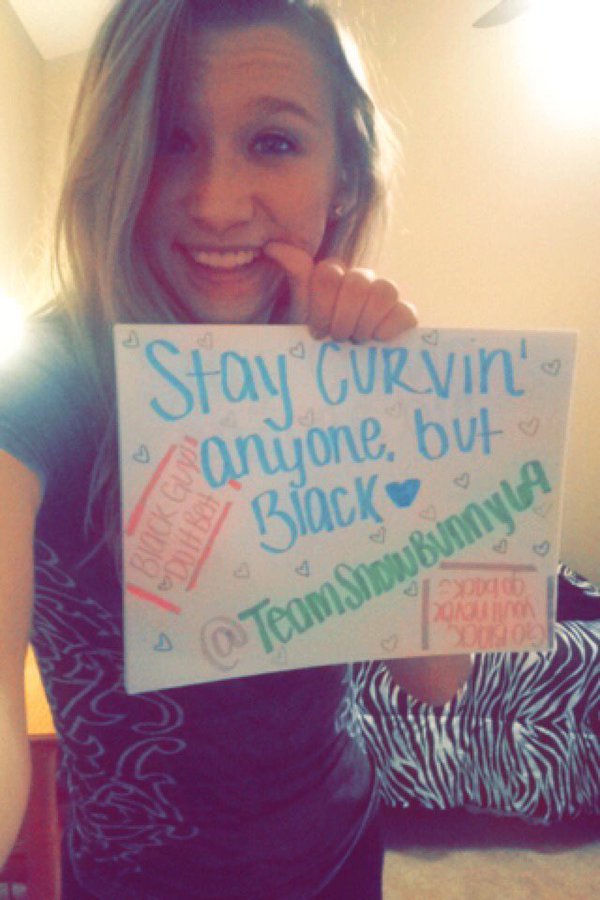 Stay CURVin'
anyone, but
Black
Black Guys
Do it Bet
@TeamSnowBunnyLA
Go BLACK
you'll never
go back